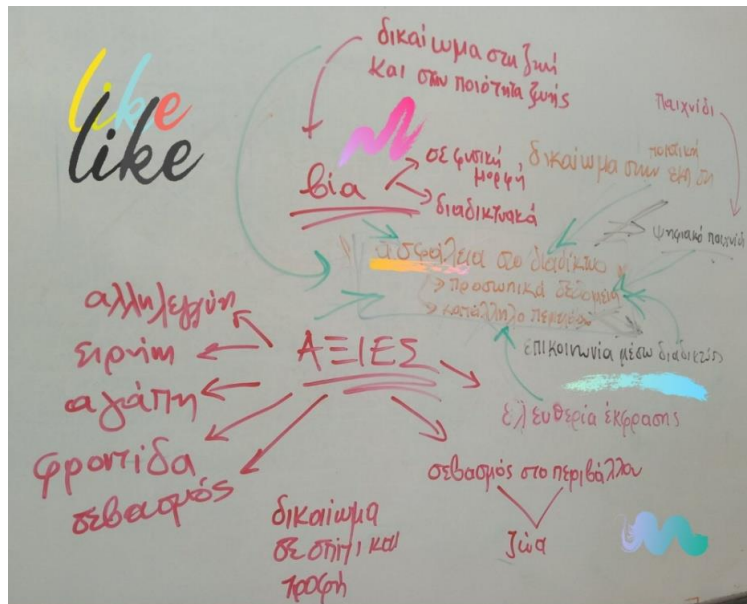 like
like
δικαίωμα στη ζωή
και στην ποιότητα ζωής
παιχνίδι
βία
σε φυσική
μορφή
διαδικτυακά
δικαίωμα στην
ψηφιακό παιχνίδι
ασφάλεια στο διαδίκτυο
προσωπικά δεδομένα
κατάλληλο περιεχόμενο
επικοινωνία μέσω διαδικτύου
ΑΞΙΕΣ
αλληλεγγύη
ειρήνη
αγάπη
φροντίδα
σεβασμός
ελευθερία έκφρασης
σεβασμός στο περιβάλλον
ζώα
δικαίωμα
σε σπίτι και
τροφή